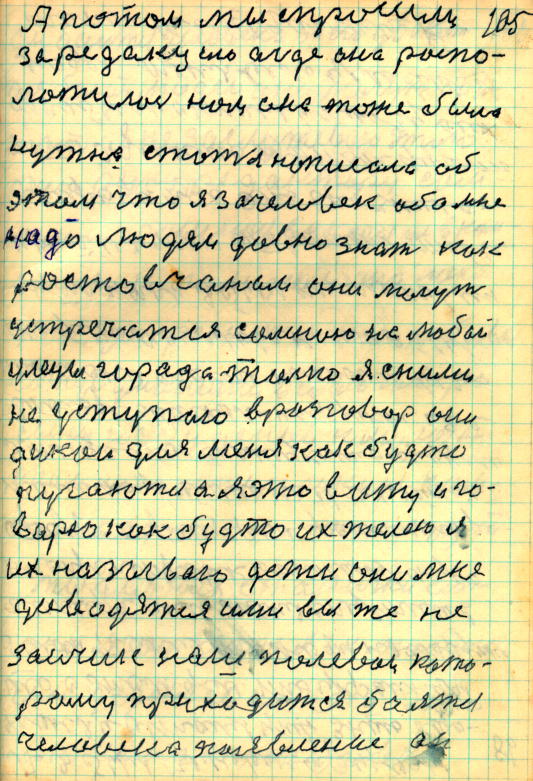 А потом мы спросили 105
за редакцыю а где она роспо-
ложилос нам она тоже была
нужна статя нописала об
этом что я за человек обо мне
надо людям довно знат как
ростовчанам они могут
устречатся сомною на любой
улецы горада толко я сними
не уступаю вразговор они
дикои для меня как будто
пугаются а я это вижу и го-
варю как будто их желею я
их называю дети они мне
доводятся или вы же не
заичик наш полевои, кото-
рому приходится боятся
человека появление он